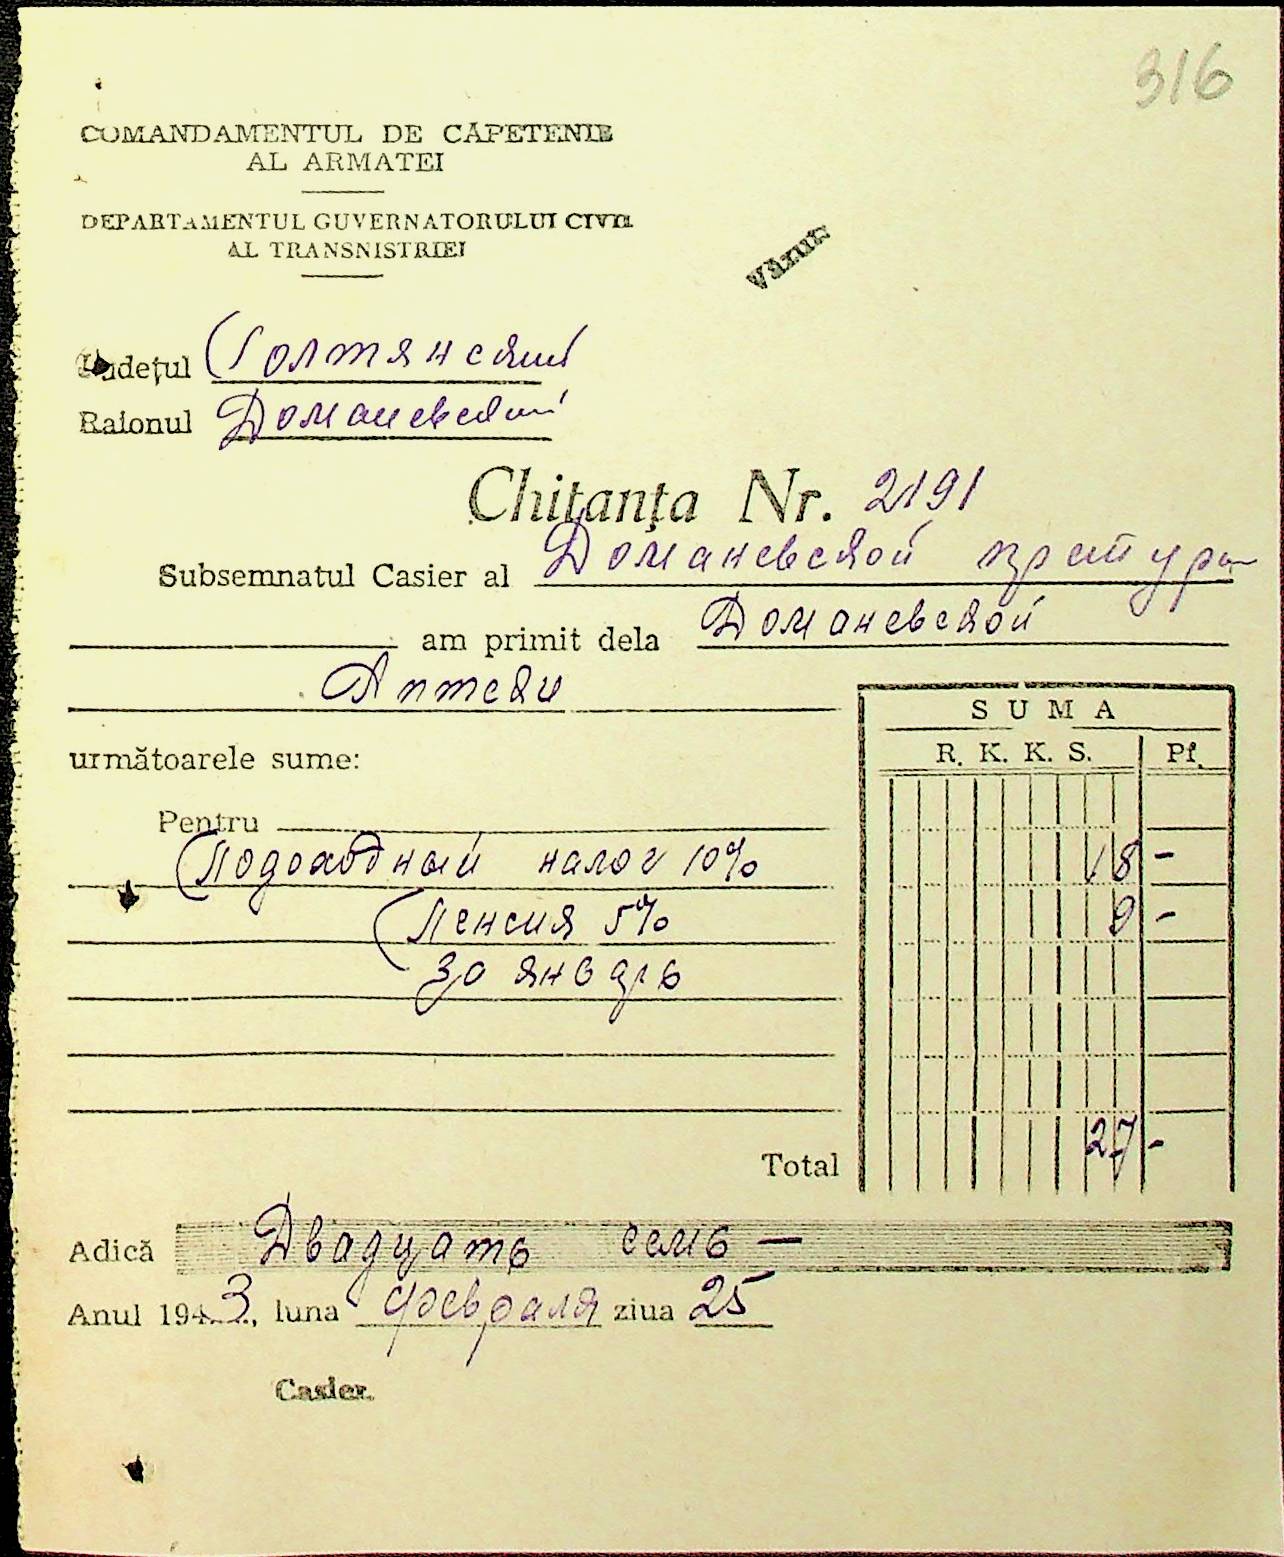 316
COMANDAMENTUL DE CĂPETENIE
AL ARMATEI
DEPARTAMENTUL GUVERNATORULUI CIVIL
AL TRANSNISTRIEI
Văzut
Judeţul Голтянский
Raionul Доманевский
Chitanţa Nr. 2191
Subsemnatul Casier al Доманевской претуры
am primit dela Доманевской
Аптеки
SUMA
R. K. K. S. Pf.
următoarele sume:
Pentru
Подоходный налог 10% 18 -
Пенсия 5% 9 -
За январь
Total 27 -
Adică Двадцать семь —
Anul 1943, luna февраля ziua 25
Casier